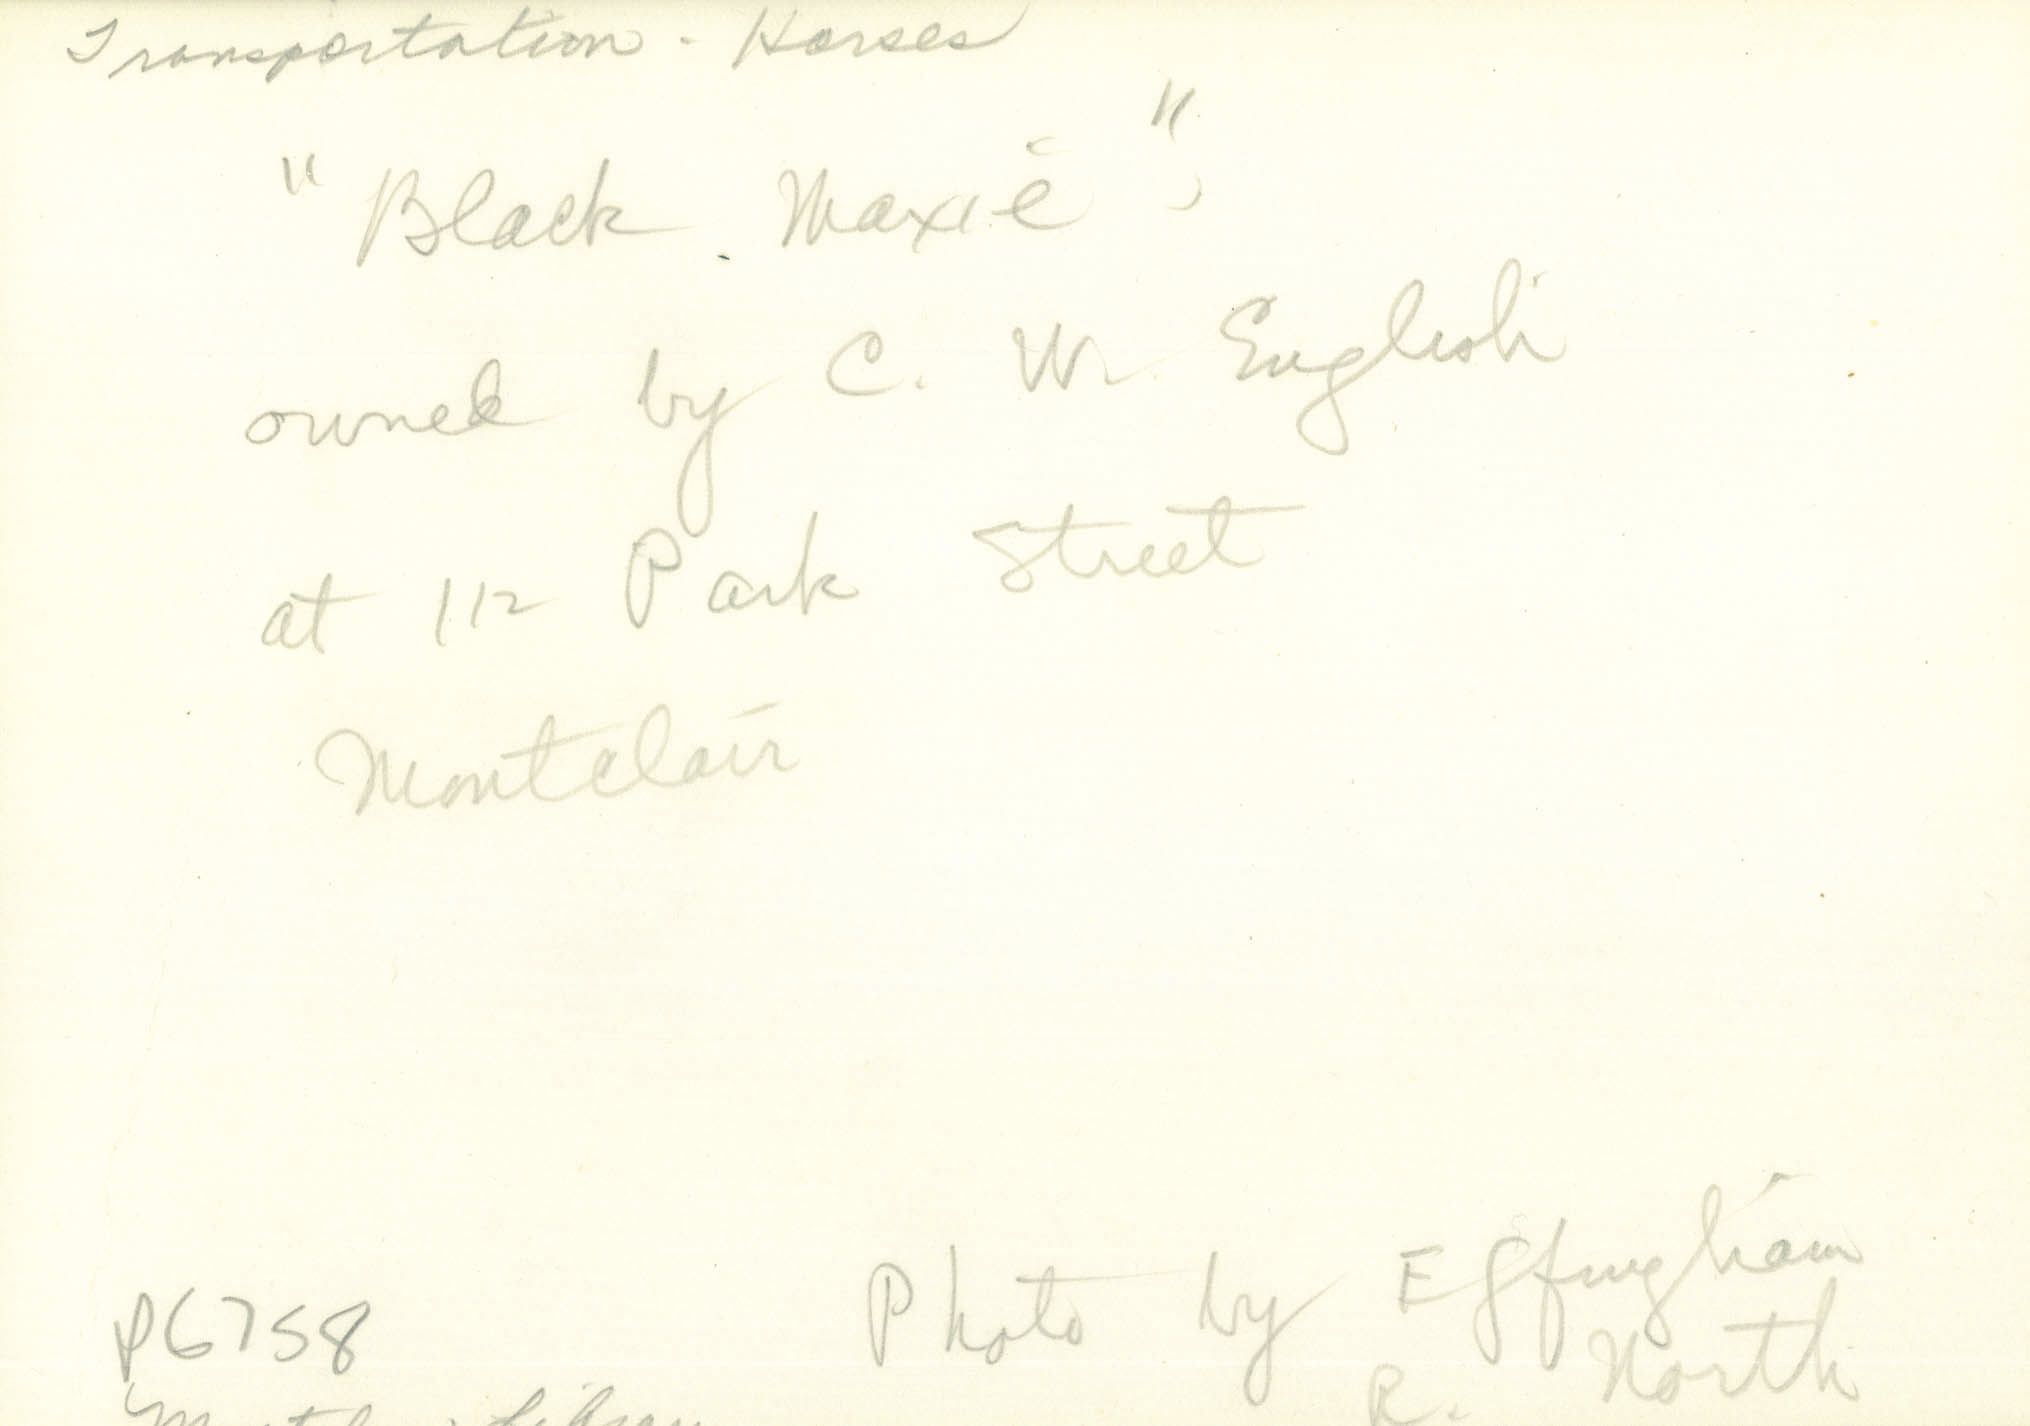 Transportation - Horses
"Black Maxie",
owned by C. W. English
at 112 Park Street
Montclair
Photo by Effingham
R. North
P6758
Library